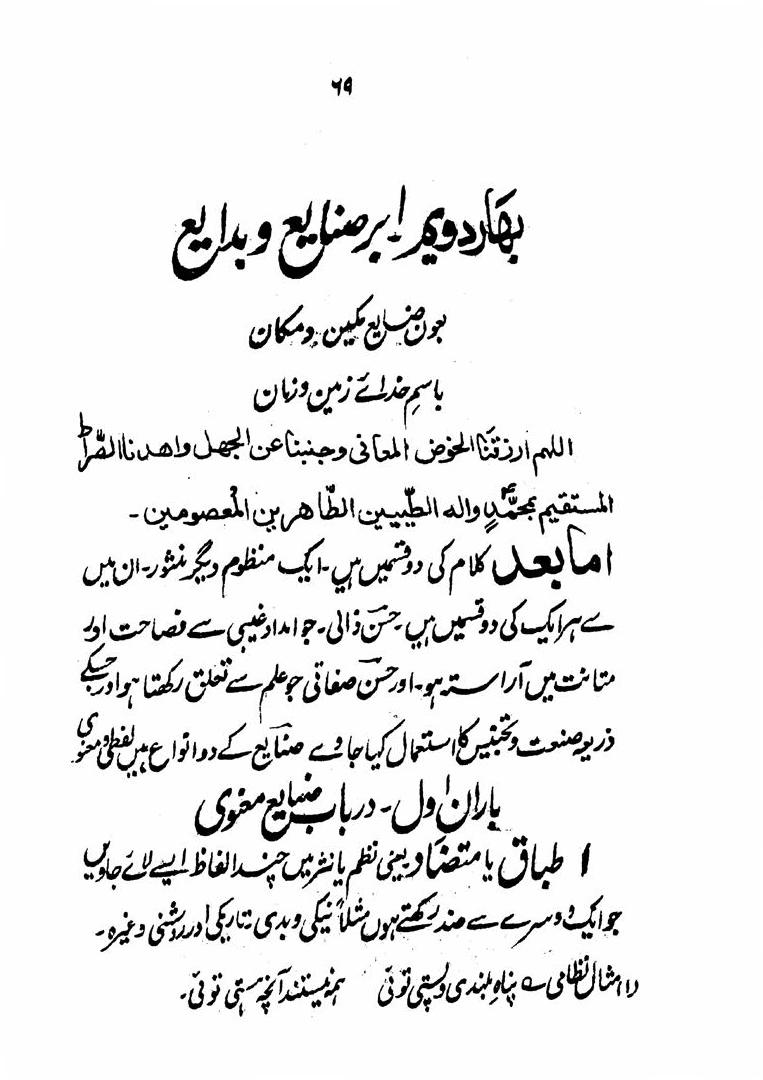 ۶۹
بھار دویم ابر صنایع و بدایع
بعون صنایع مکین و مکان
باسمِ خدائے زمین و زمان
اللہم ارزقنا الخوض المعانی وجنبنا عن الجھل واھدنا الصّراط
المستقیم بمحمّدٍ والہ الطیّبین الطّاھرین المعصومین۔
اما بعد کلام کی دو قسمیں ہیں۔ ایک منظوم دیگر منثور۔ ان میں
سے ہر ایک کی دو قسمیں ہیں۔ حسن ذاتی۔ جو امداد غیبی سے فصاحت اور
متانت میں آراستہ ہو۔ اور حسن صفاتی جو علم سے تعلق رکھتا ہو اور جسکے
ذریعہ صنعت و تجنیس کا استعمال کیا جاوے صنایع کے دو انواع ہیں لفظی و معنوی
باران اول۔ در باب صنایع معنوی
۱ طباق یا متضاد یعنی نظم یا نثر میں چند الفاظ ایسے لائے جاویں
جو ایک دوسرے سے ضد رکھتے ہوں مثلاً نیکی و بدی۔ تاریکی اور روشنی وغیرہ۔
(۱) مثال نظامی ؎ پناہِ بلندی و پستی توئی ہمہ نیستند آنچہ ہستی توئی۔